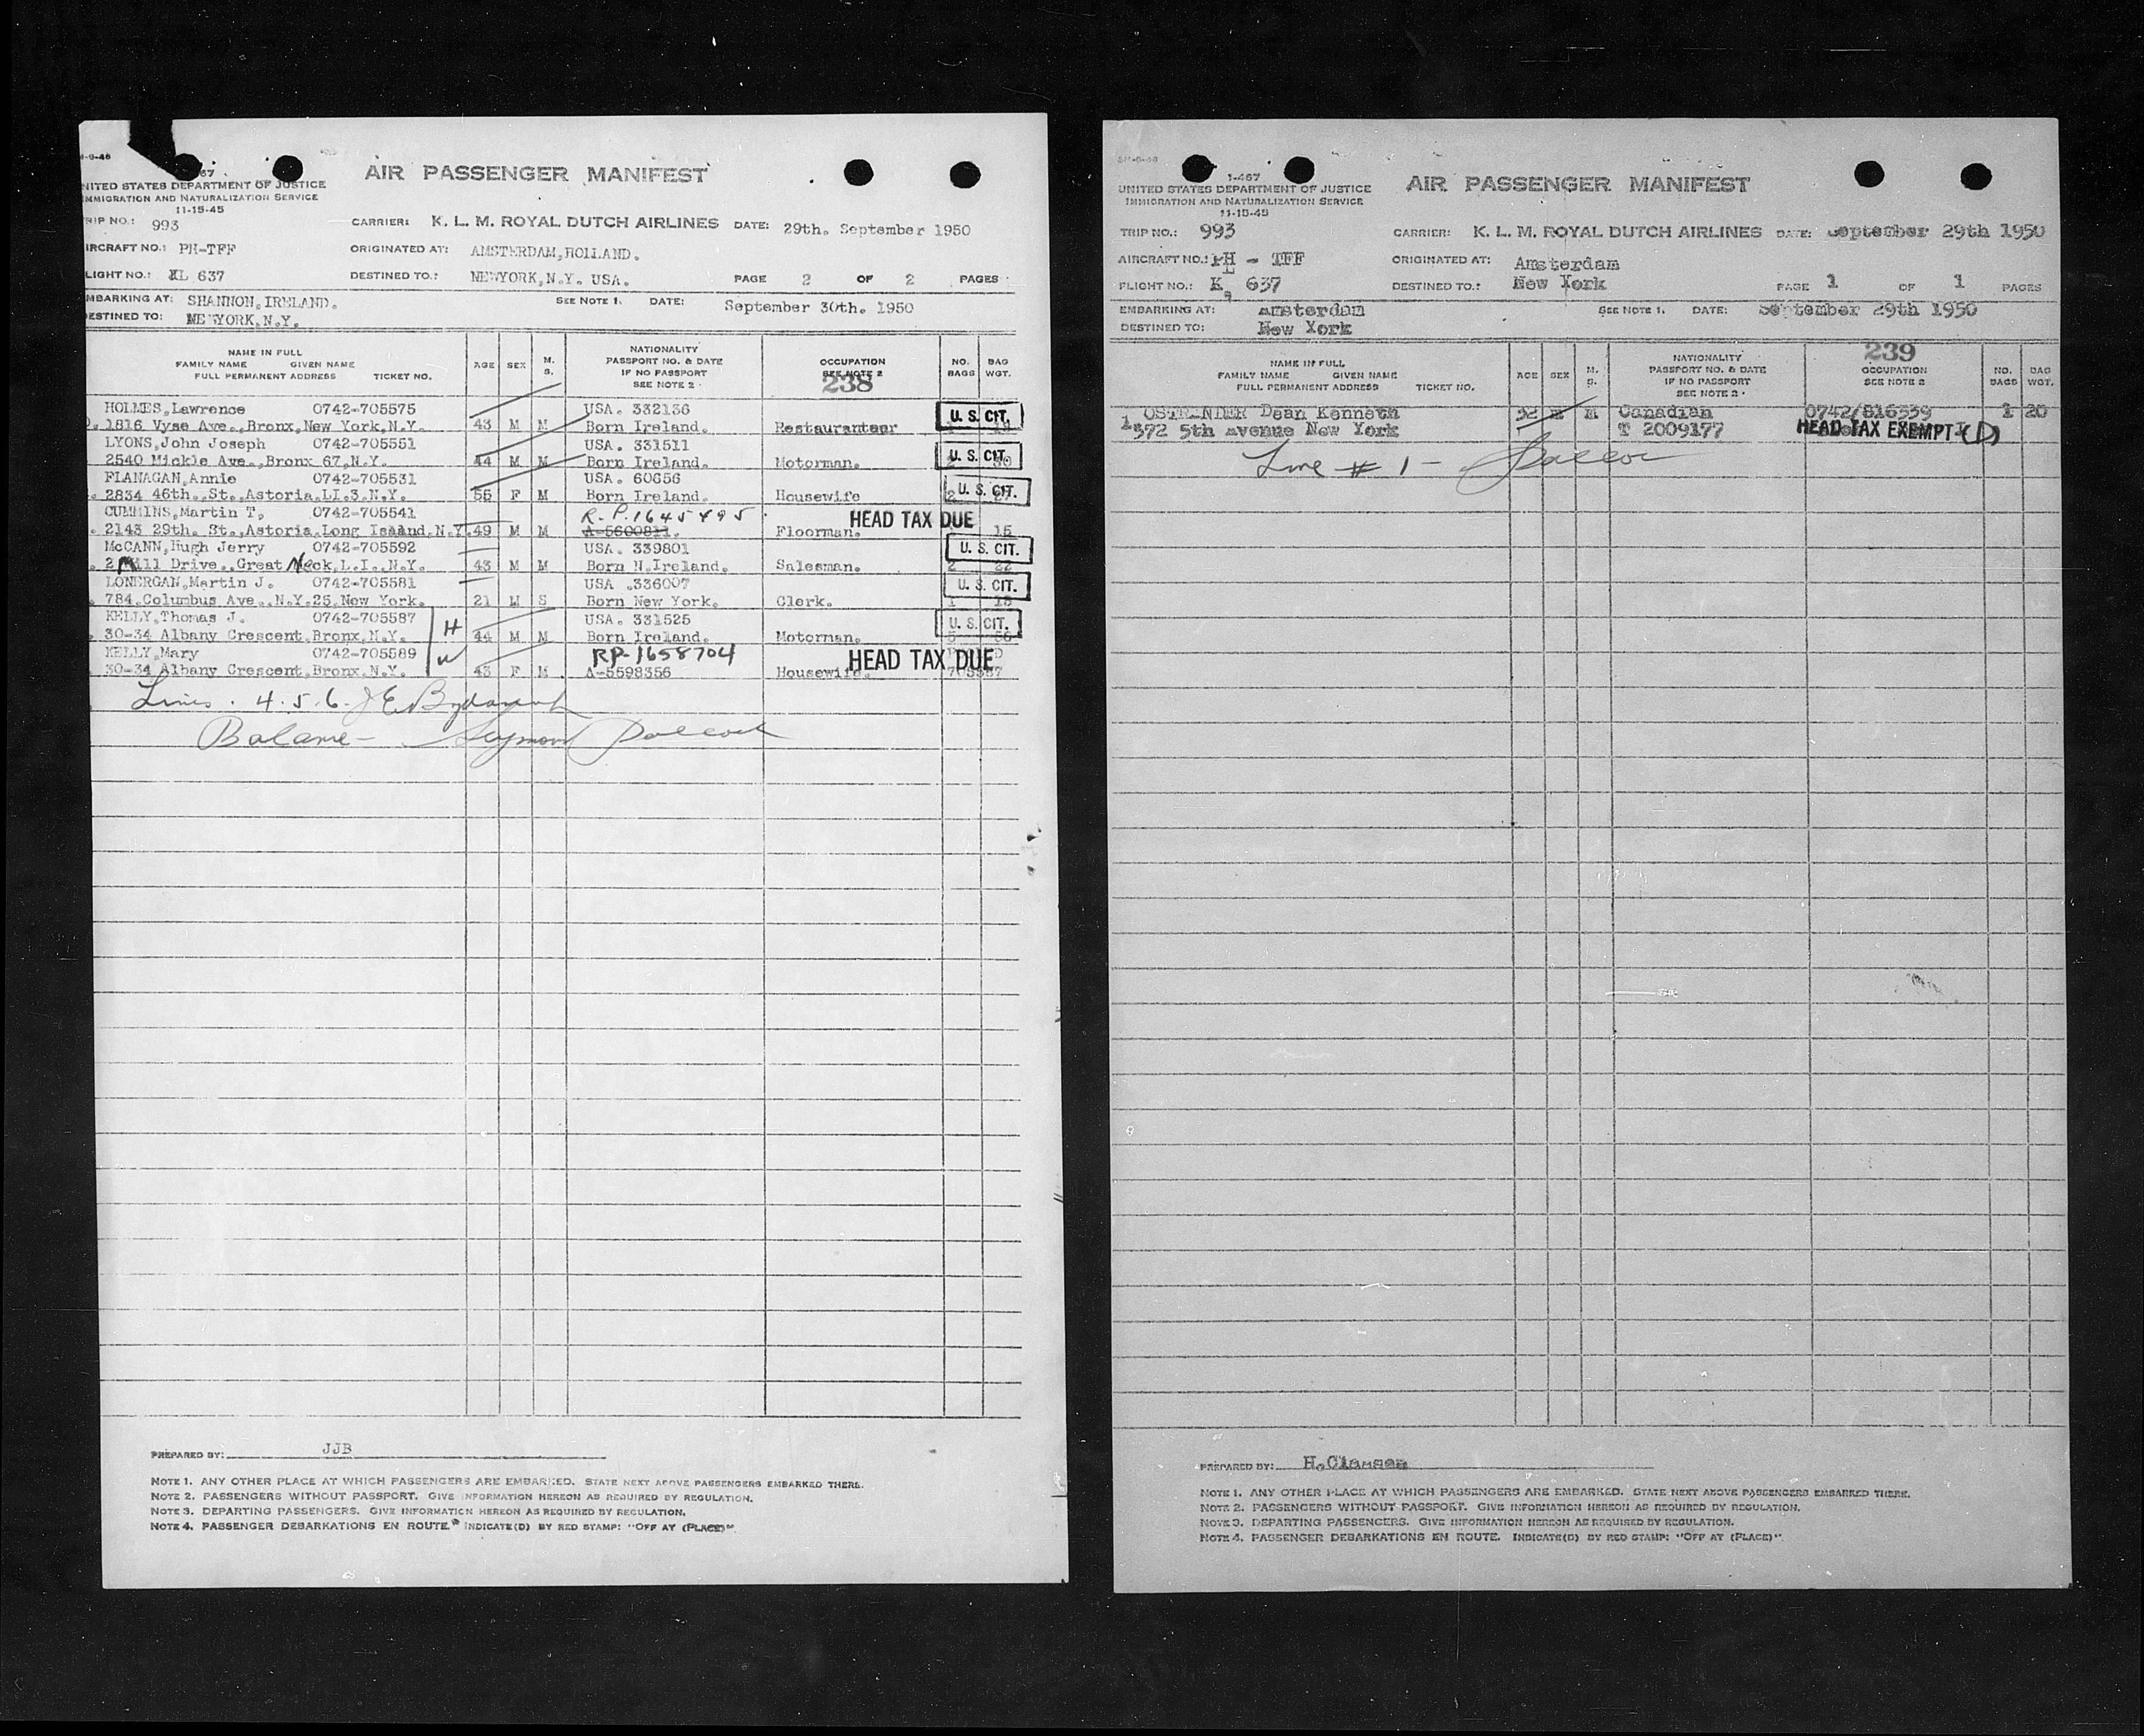 AIR PASSENGER MANIFEST
NITED STATES DEPARTMENT OF JUSTICE
MMIGRATION AND NATURALIZATION SERVICE
11-15-45
RIP NO.: 993
CARRIER: K. L. M. ROYAL DUTCH AIRLINES DATE: 29th. September 1950
IRCRAFT NO.: PH-TFF
ORIGINATED AT: AMSTERDAM,HOLLAND.
LIGHT NO.: KL 637
DESTINED TO.: NEWYORK,N.Y. USA. PAGE 2 OF 2 PAGES
MBARKING AT: SHANNON,IRELAND. SEE NOTE 1. DATE: September 30th. 1950
ESTINED TO: NEWYORK,N.Y.
NAME IN FULL
FAMILY NAME GIVEN NAME
FULL PERMANENT ADDRESS TICKET NO.
AGE SEX M. S.
NATIONALITY
PASSPORT NO. & DATE
IF NO PASSPORT
SEE NOTE 2
OCCUPATION
SEE NOTE 2
238
NO. BAGS
BAG WGT.
HOLMES,Lawrence 0742-705575 USA. 332136 U. S. CIT.
1816 Vyse Ave.,Bronx,New York,N.Y. 43 M M Born Ireland. Restauranteer
LYONS,John Joseph 0742-705551 USA. 331511 U. S. CIT.
2540 Mickle Ave.,Bronx 67,N.Y. 44 M M Born Ireland. Motorman.
FLANAGAN,Annie 0742-705531 USA. 60656 U. S. CIT.
2834 46th. St.,Astoria,LI.3,N.Y. 55 F M Born Ireland. Housewife 2
CUMMINS,Martin T, 0742-705541 R.P.1645495 HEAD TAX DUE
2143 29th. St.,Astoria,Long Island,N.Y. 49 M M A-5600811. Floorman. 15
McCANN,Hugh Jerry 0742-705592 USA. 339801 U. S. CIT.
2 Mill Drive.,Great Neck,L.I.,N.Y. 43 M M Born N.Ireland. Salesman. 2 22
LONERGAN,Martin J. 0742-705581 USA .336007 U. S. CIT.
784,Columbus Ave.,N.Y.25,New York. 21 M S Born New York. Clerk. 1
KELLY,Thomas J. 0742-705587 H USA. 331525 U. S. CIT.
30-34 Albany Crescent,Bronx,N.Y. 44 M M Born Ireland. Motorman.
KELLY,Mary 0742-705589 W RP-1658704 HEAD TAX DUE
30-34 Albany Crescent,Bronx,N.Y. 43 F M A-5598356 Housewife.
Lines . 4.5.6.
Balance - Seymour
PREPARED BY: JJB
NOTE 1. ANY OTHER PLACE AT WHICH PASSENGERS ARE EMBARKED. STATE NEXT ABOVE PASSENGERS EMBARKED THERE.
NOTE 2. PASSENGERS WITHOUT PASSPORT. GIVE INFORMATION HEREON AS REQUIRED BY REGULATION.
NOTE 3. DEPARTING PASSENGERS. GIVE INFORMATION HEREON AS REQUIRED BY REGULATION.
NOTE 4. PASSENGER DEBARKATIONS EN ROUTE. INDICATE(D) BY RED STAMP: "OFF AT (PLACE)".
1-467
UNITED STATES DEPARTMENT OF JUSTICE
IMMIGRATION AND NATURALIZATION SERVICE
11-15-45
AIR PASSENGER MANIFEST
TRIP NO.: 993
CARRIER: K. L. M. ROYAL DUTCH AIRLINES DATE: September 29th 1950
AIRCRAFT NO.: PH - TFF
ORIGINATED AT: Amsterdam
FLIGHT NO.: KL 637
DESTINED TO.: New York PAGE 1 OF 1 PAGES
EMBARKING AT: Amsterdam SEE NOTE 1. DATE: September 29th 1950
DESTINED TO: New York
NAME IN FULL
FAMILY NAME GIVEN NAME
FULL PERMANENT ADDRESS TICKET NO.
AGE SEX M. S.
NATIONALITY
PASSPORT NO. & DATE
IF NO PASSPORT
SEE NOTE 2
239
OCCUPATION
SEE NOTE 2
NO. BAGS
BAG WGT.
OSTRANDER Dean Kenneth 32 M M Canadian 0742/816539 1 20
1 572 5th Avenue New York T 2009177 HEAD TAX EXEMPT (D)
Line # 1 -
PREPARED BY: H.Clamsen
NOTE 1. ANY OTHER PLACE AT WHICH PASSENGERS ARE EMBARKED. STATE NEXT ABOVE PASSENGERS EMBARKED THERE.
NOTE 2. PASSENGERS WITHOUT PASSPORT. GIVE INFORMATION HEREON AS REQUIRED BY REGULATION.
NOTE 3. DEPARTING PASSENGERS. GIVE INFORMATION HEREON AS REQUIRED BY REGULATION.
NOTE 4. PASSENGER DEBARKATIONS EN ROUTE. INDICATE(D) BY RED STAMP: "OFF AT (PLACE)".